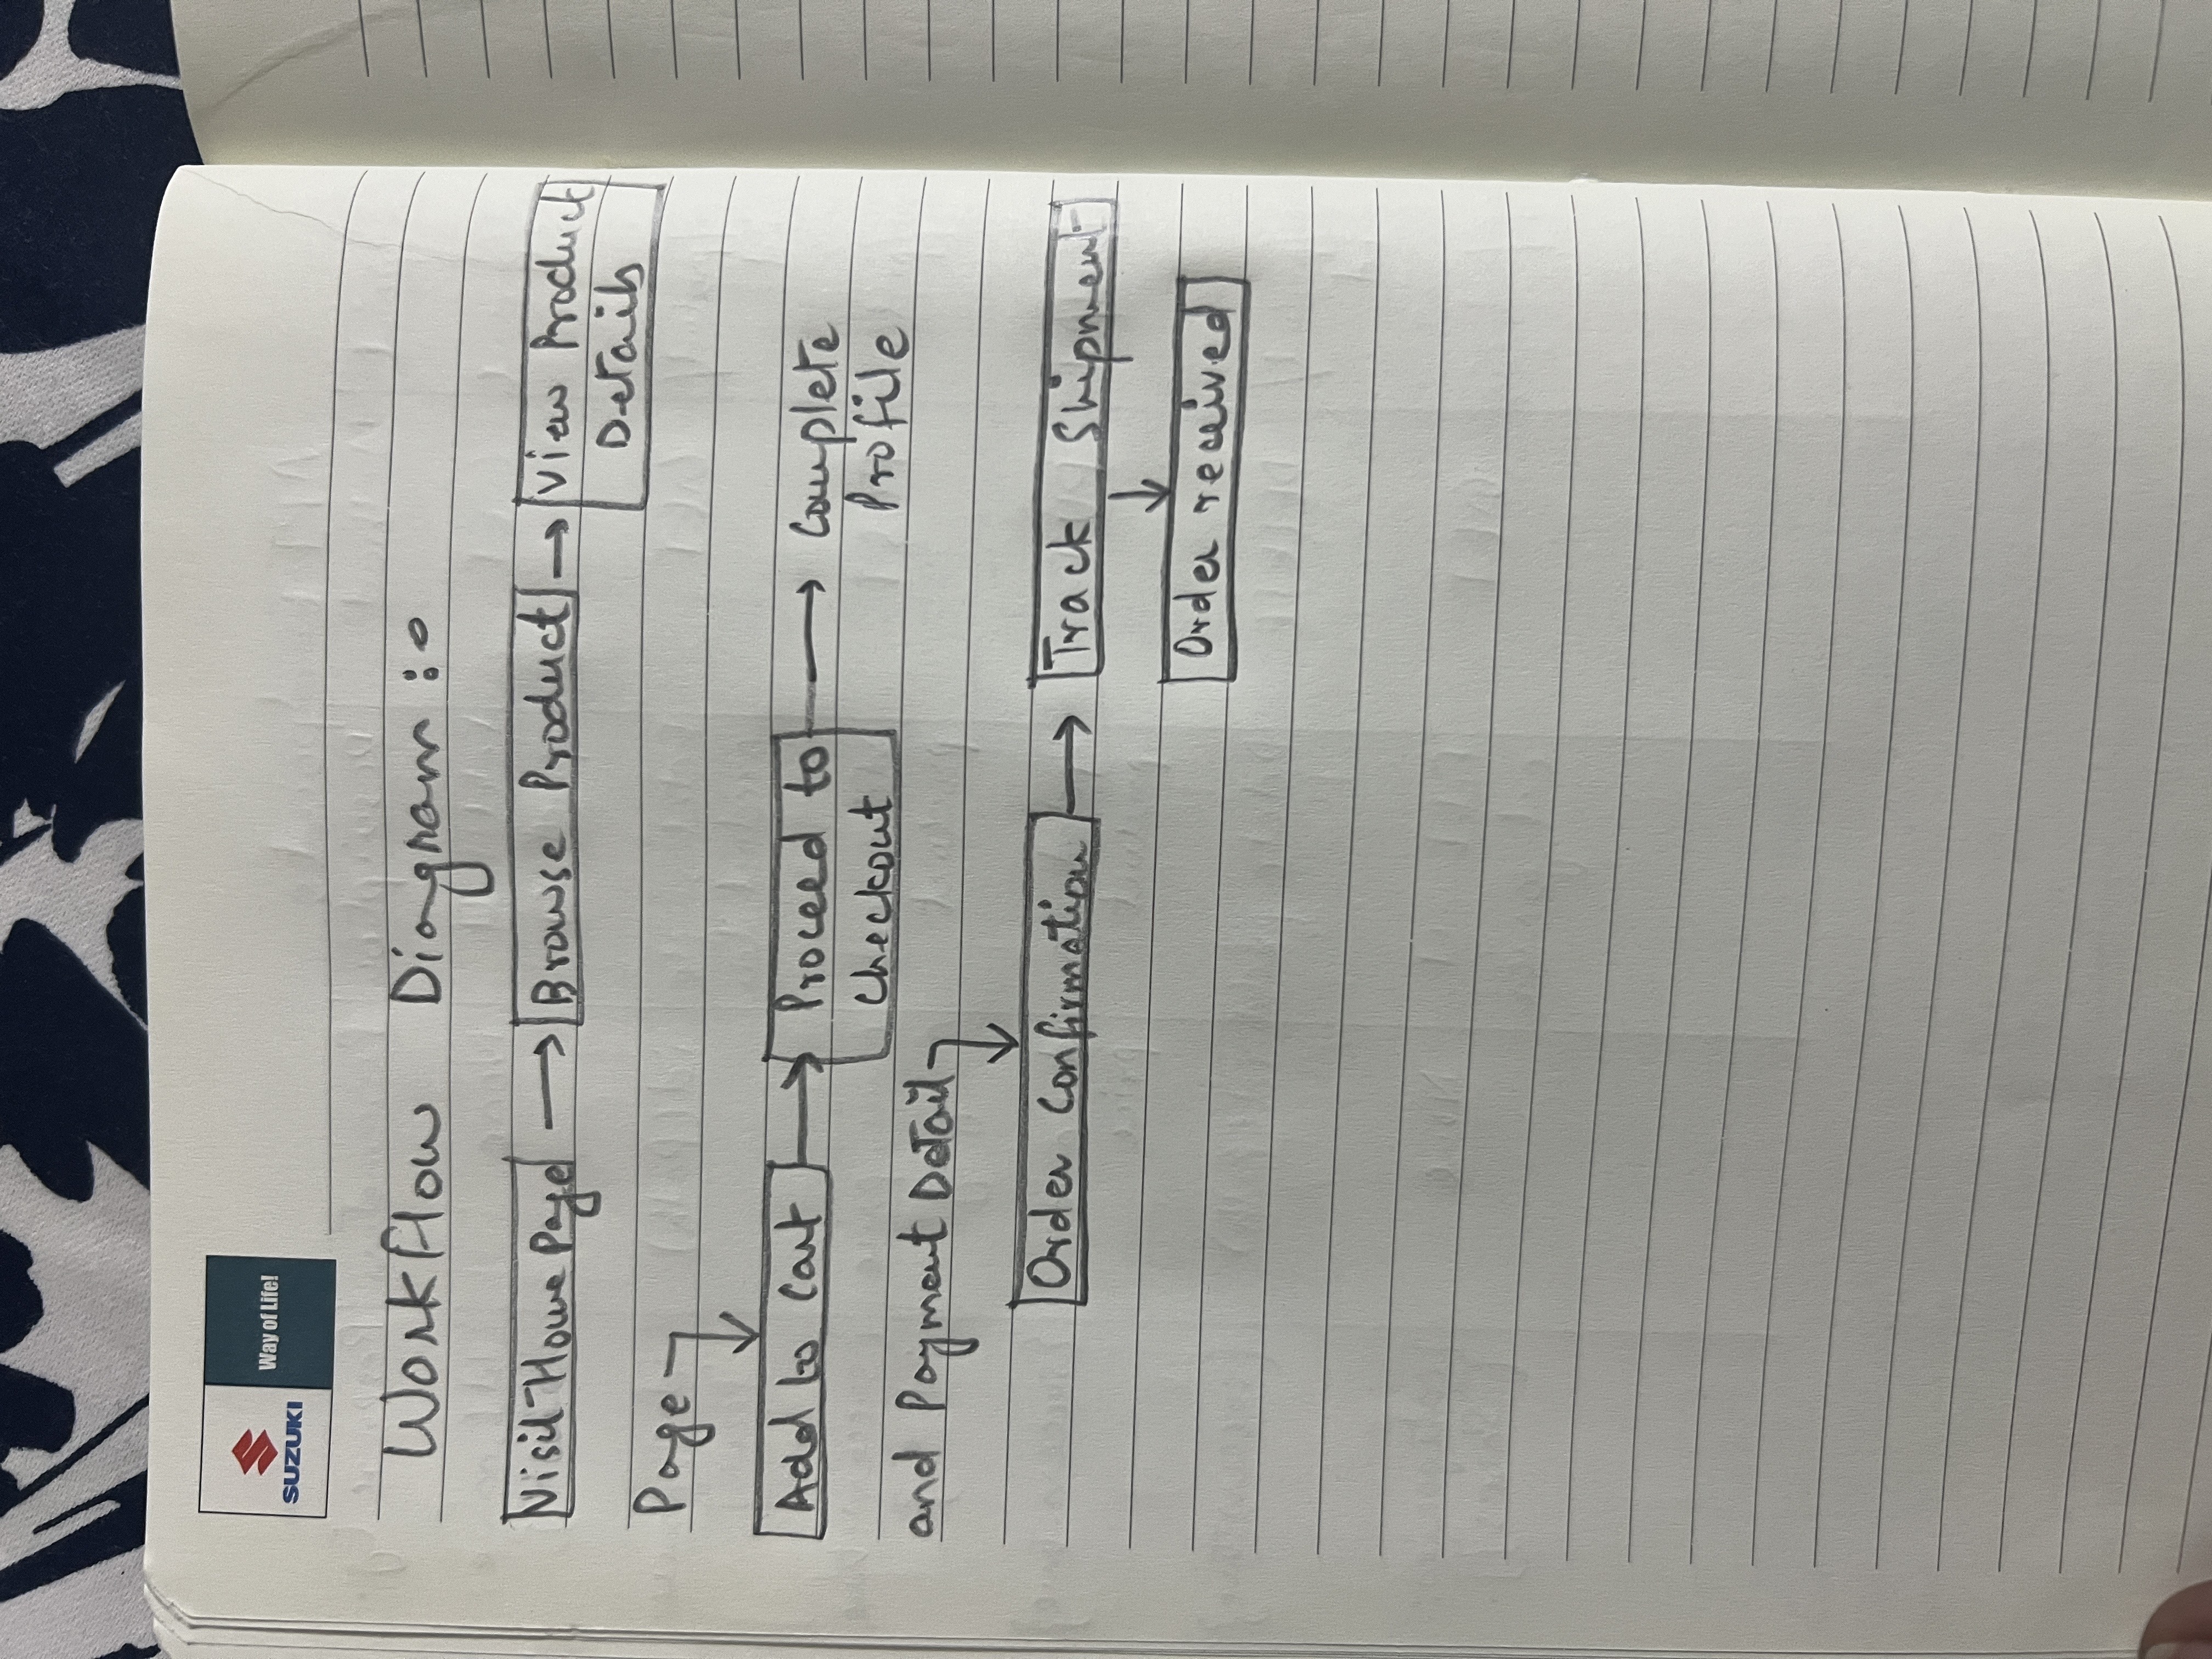 SUZUKI
Way of Life!
Workflow Diagram :-
Visit Home Page → Browse Product → View Product
Details
Page
Add to Cart → Proceed to → Complete
Checkout Profile
and Payment Detail
Order Confirmation → Track Shipment
Order received